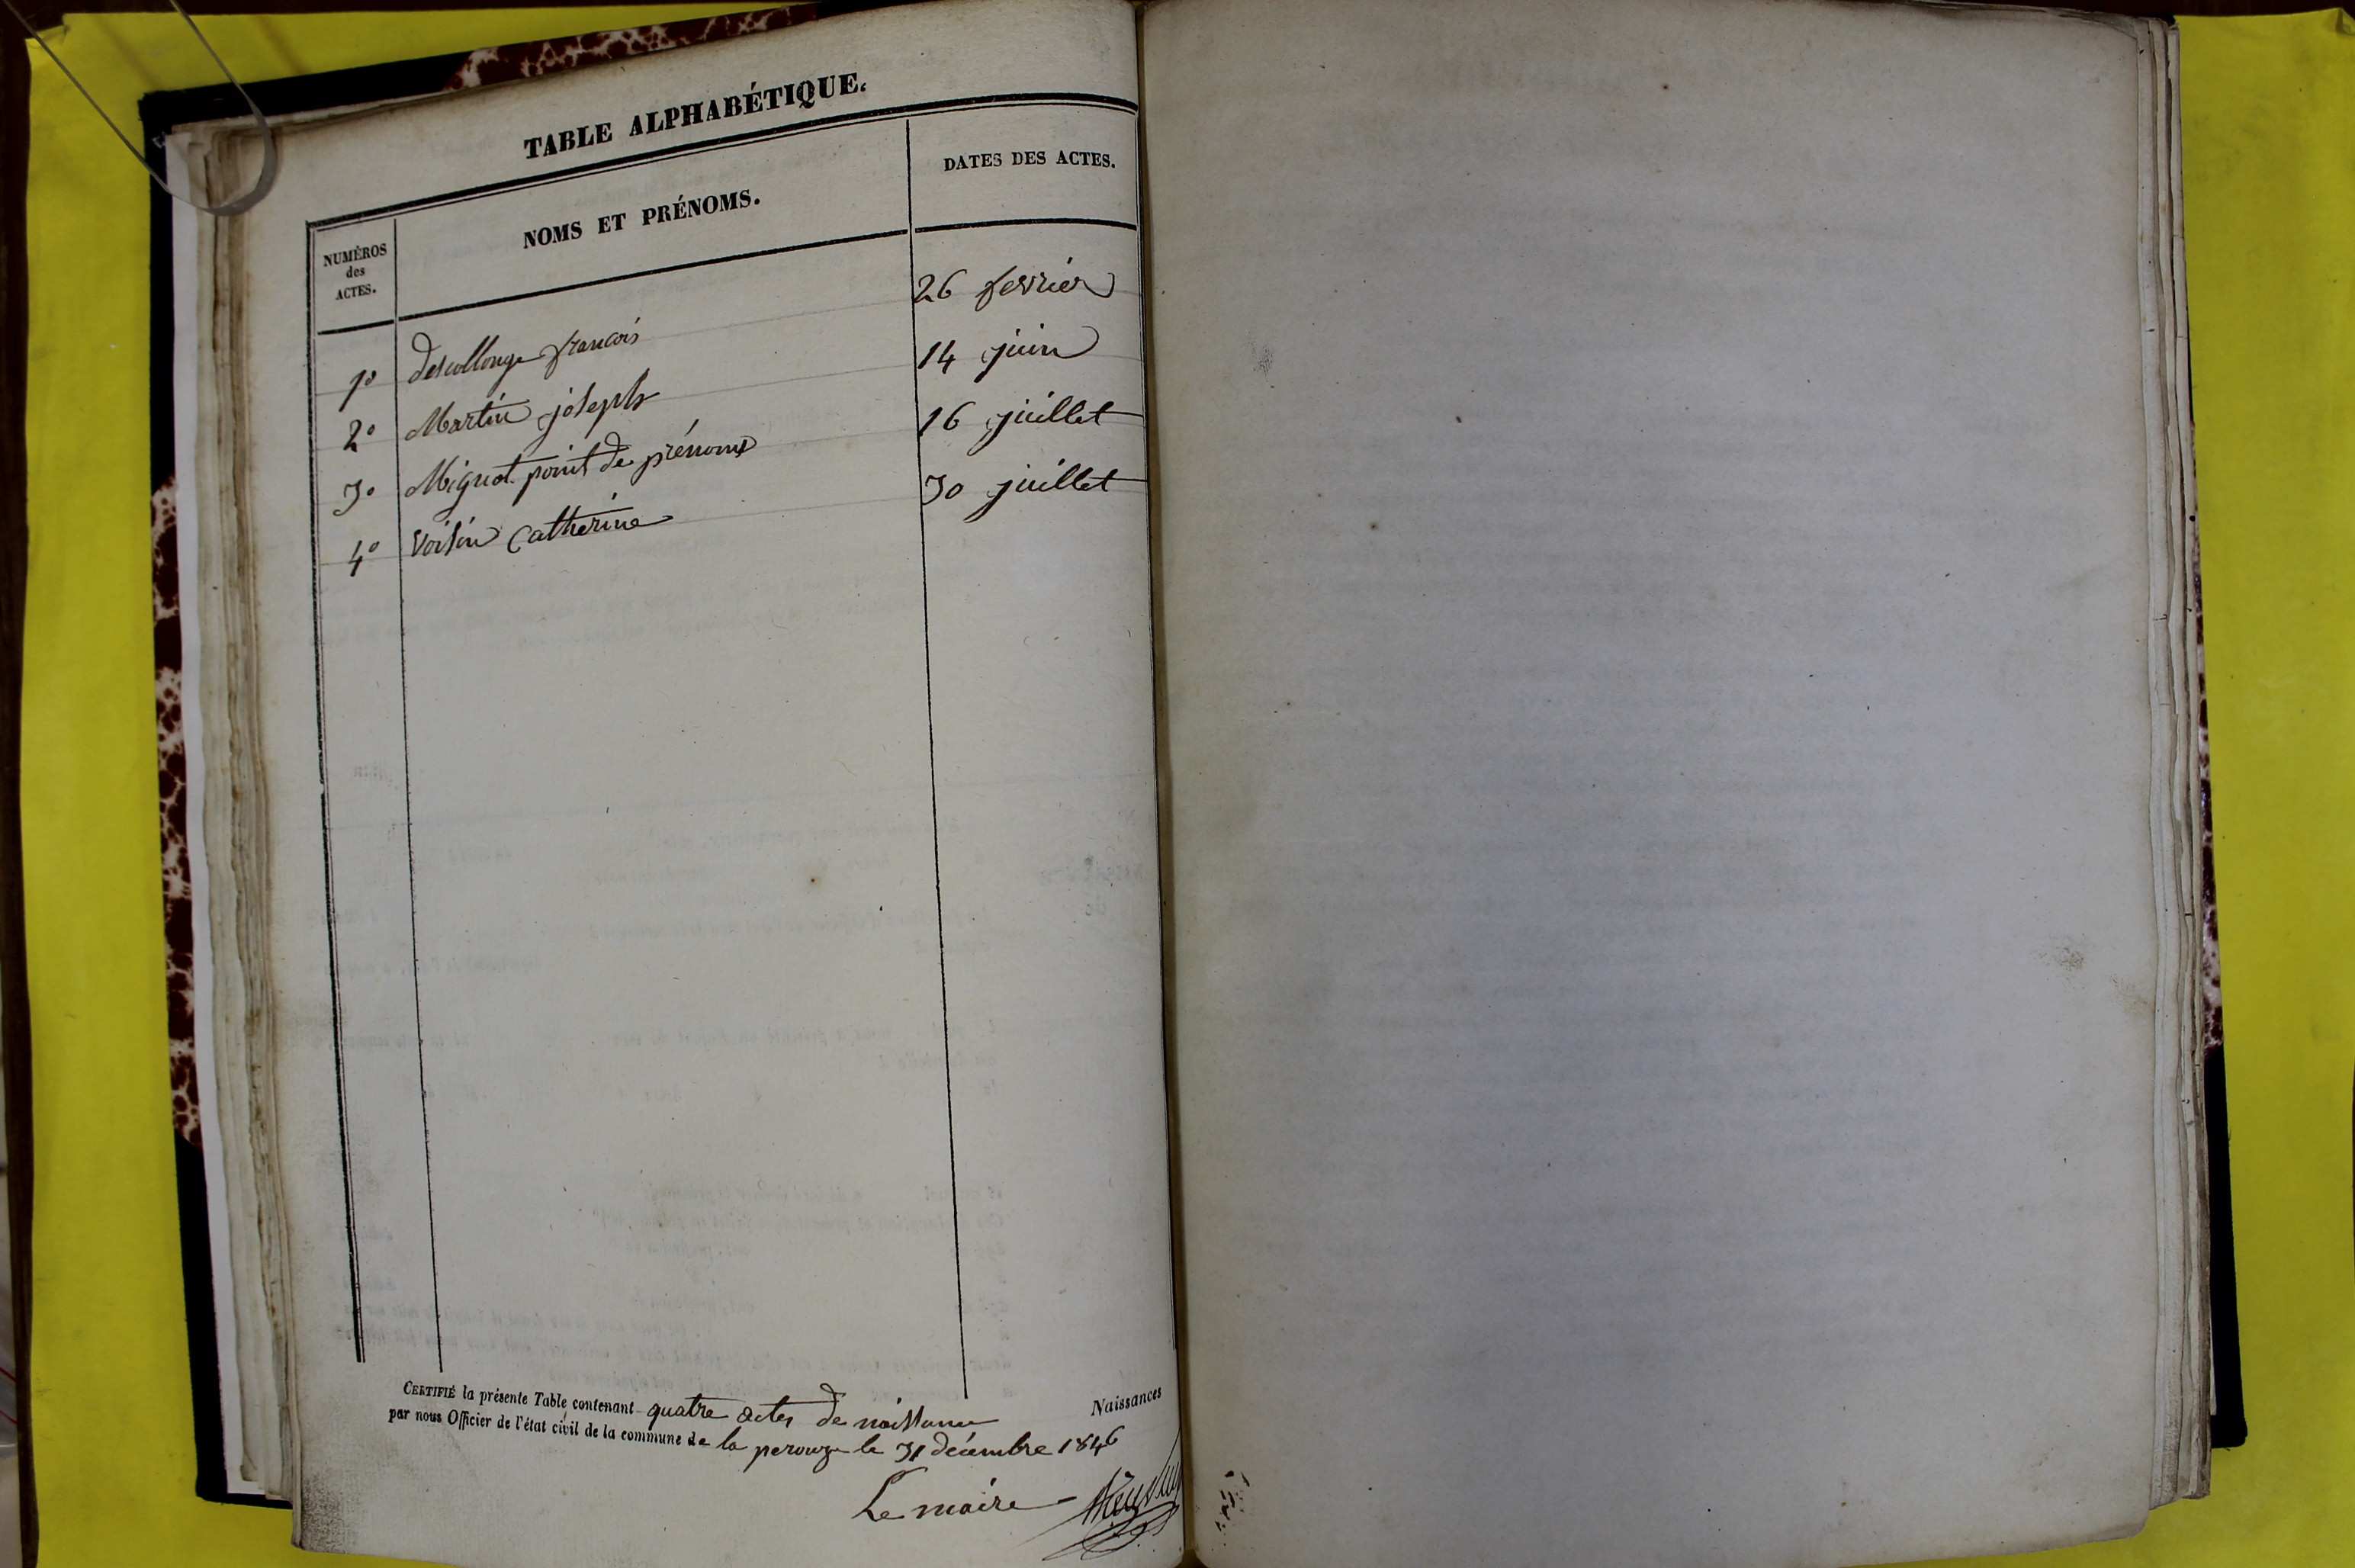 TABLE ALPHABÉTIQUE.
NUMÉROS des ACTES. NOMS ET PRÉNOMS. DATES DES ACTES.
1º descollonge françois 26 fevrier
2º Martin joseph 14 juin
3º Mignot point de prénoms 16 juillet
4º Voisin Catherine 30 juillet
CERTIFIÉ la présente Table contenant quatre actes de naissance Naissances
par nous Officier de l'état civil de la commune de la perouze le 31 décembre 1846
Le maire